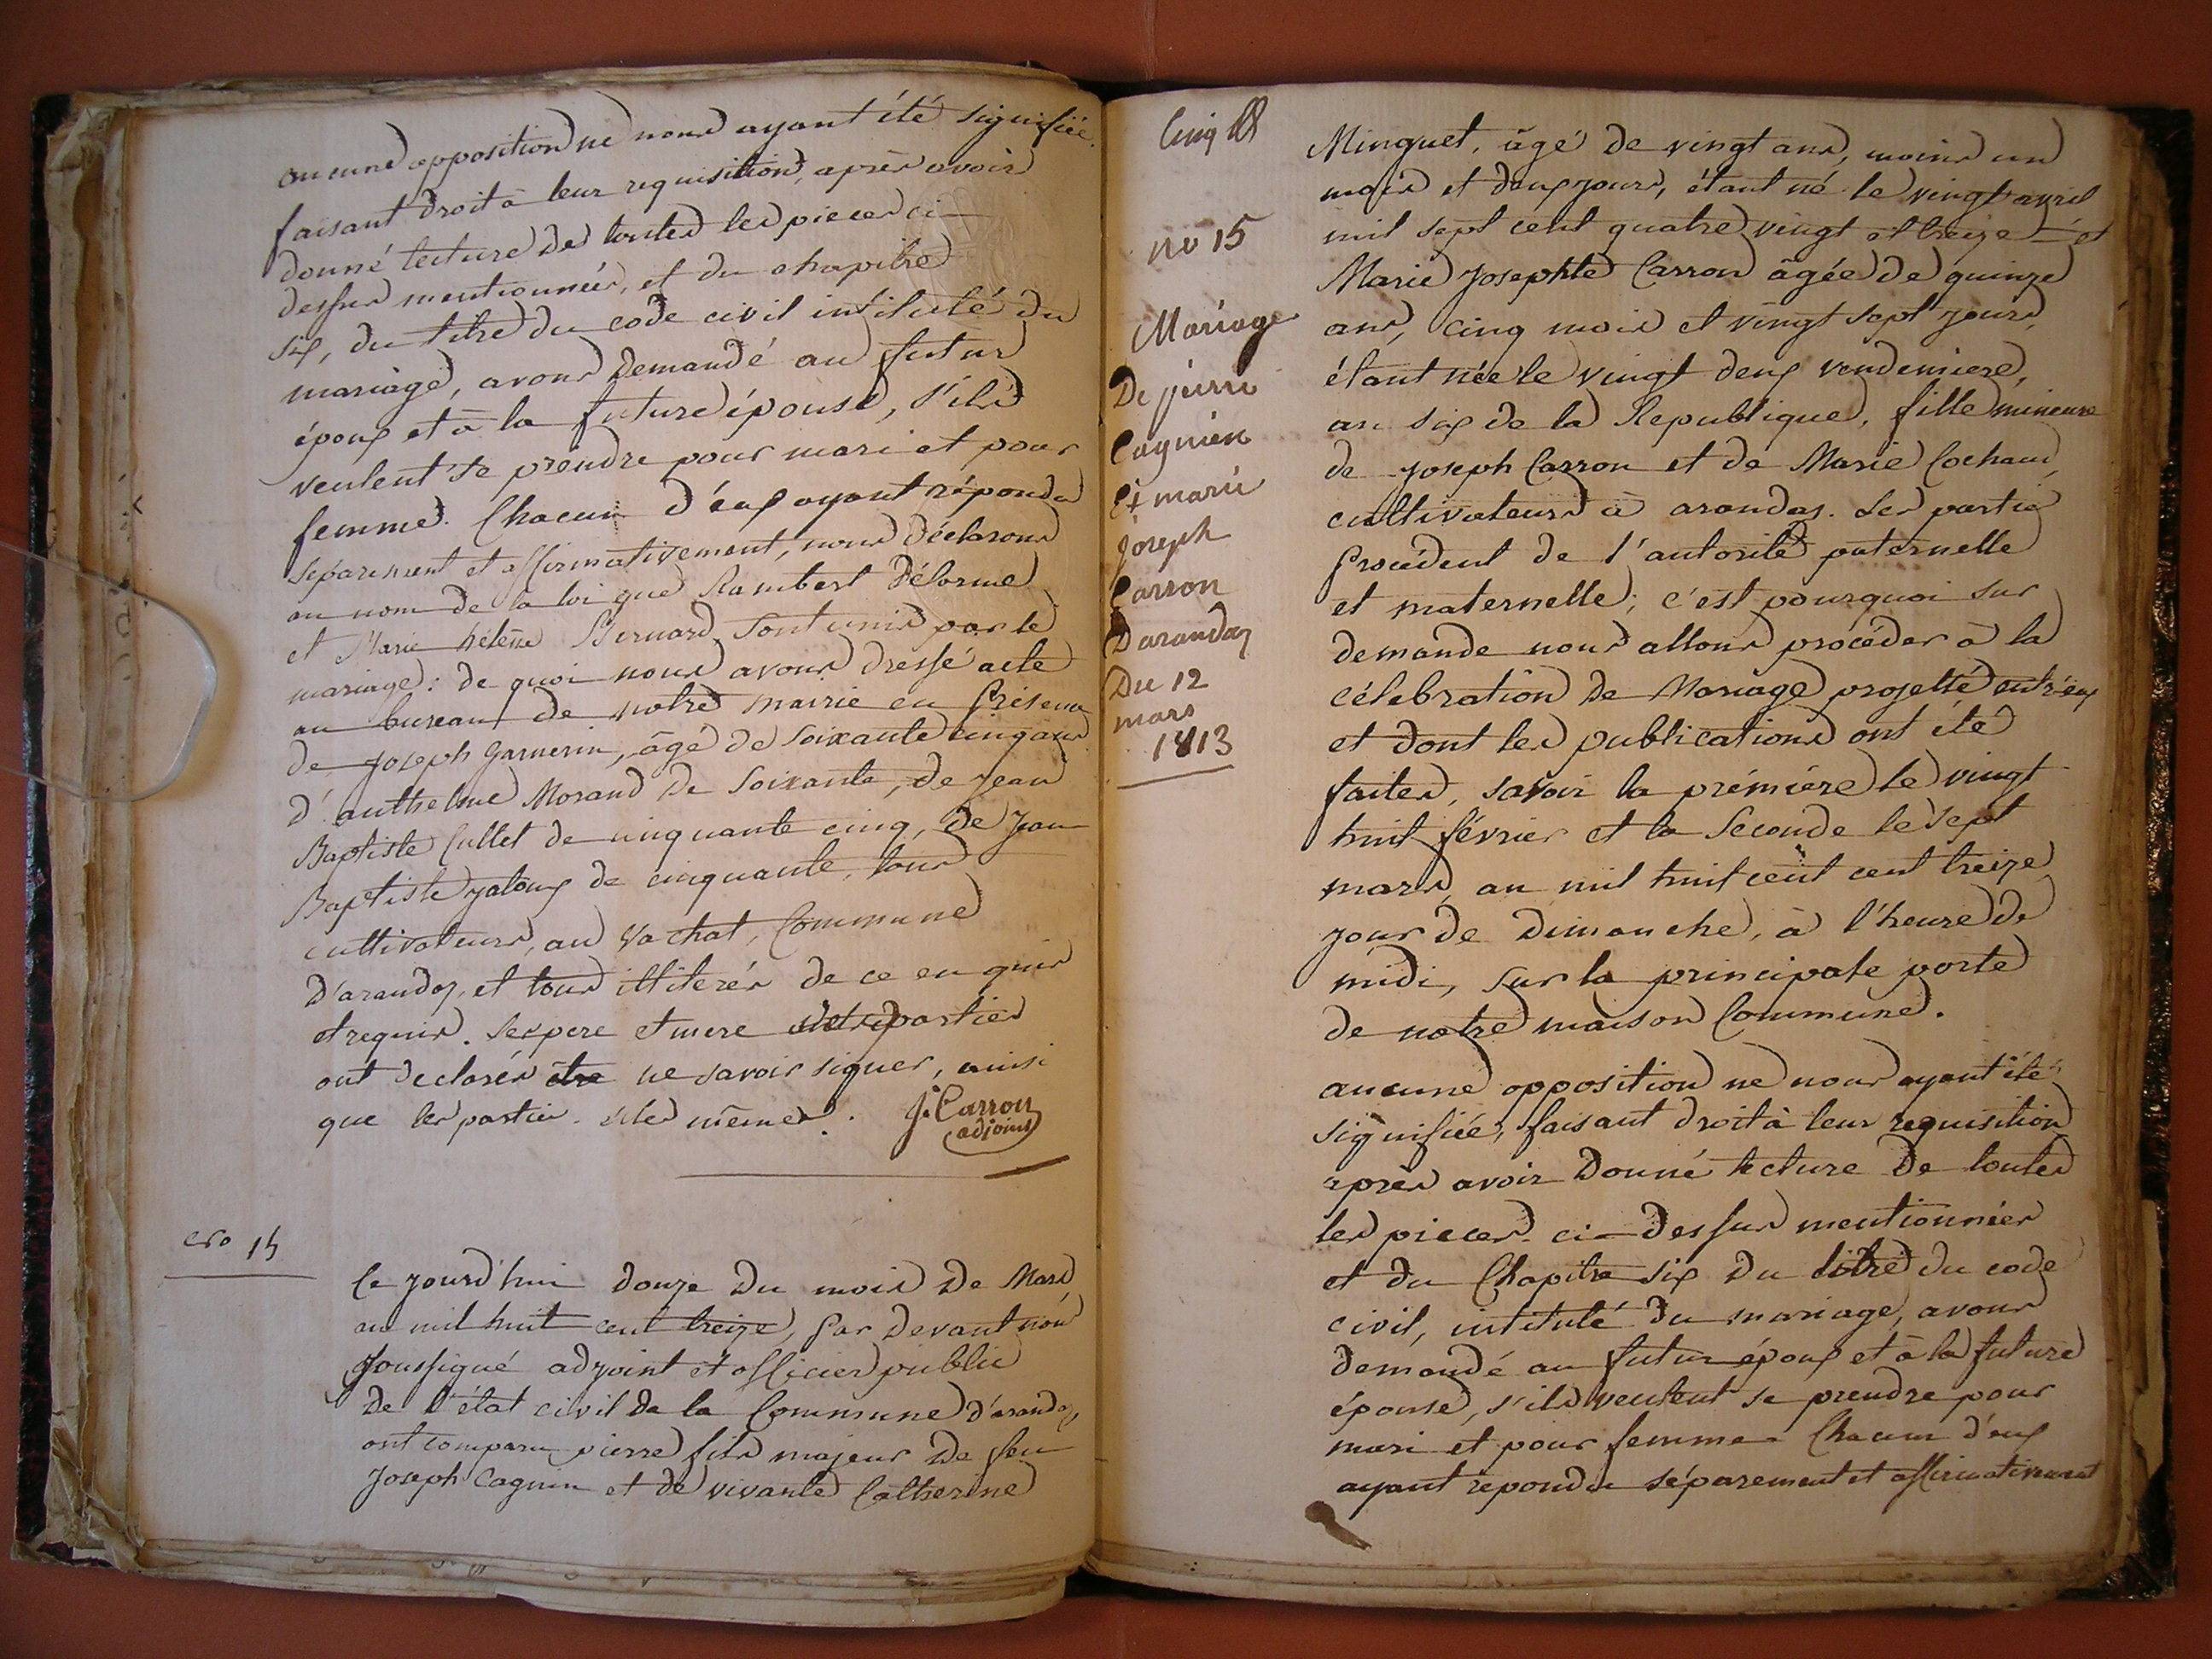 aucune opposition ne nous ayant été signifiée.
faisant droit à leur requisition, après avoir
donné lecture de toutes les pieces ci
dessus mentionnées, et du chapitre
six, du titre du code civil intitulé du
mariage, avons demandé au futur
époux et à la future épouse, s'ils
veulent se prendre pour mari et pour
femme. Chacun d'eux ayant répondu
séparement et affirmativement, nous déclarons
au nom de la loi que Rambert Délorme
et Marie hélène Bernard, sont unis par le
mariage: de quoi nous avons dressé acte
au bureau de notre mairie en présence
de Joseph Garnerin, âgé de soixante cinq ans
d'anthelme Morand de soixante, de jean
Baptiste Cullet de cinquante cinq, de jean
Baptiste jaloux de cinquante, tous
cultivateurs, au Vachat, Commune
D'arandas, et tous illiterés de ce enquis
et requis. Les pere et mere des parties
ont declarés être ne savoir signer, ainsi
que les parties elles mêmes. J. Carron
adjoint
nro 15
Ce jourd'hui douze du mois de Mars,
an mil huit cent treize, par devant nous
soussigné adjoint et officier public
De l'état civil de la Commune d'arandas,
ont comparu pierre fils majeur de feu
Joseph Cagnin et de vivante Catherine
Cinq
no 15
Mariage
De pierre
Cagnien
Et marie
joseph
Carron
Darandas
Du 12
mars
1813
Minguet, âgé de vingt ans, moins un
mois et deux jours, étant né le vingt avril
mil sept cent quatre vingt et treize – et
Marie Josephte Carron âgée de quinze
ans, cinq mois et vingt sept jours,
étant née le vingt deux vendemiere,
an six de la Republique, fille mineure
de joseph Carron et de Marie Cochaud,
cultivateurs à arandas. Les parties
procédent de l'autorité paternelle
et maternelle; c'est pourquoi sur
demande nous allons procéder à la
célebration de Mariage projetté entr'eux
et dont les publications ont été
faites, savoir la prémiére le vingt
huit février et la seconde le sept
mars, an mil huit cent cent treize,
jour de dimanche, à l'heure de
midi, sur la principale porte
de notre maison Commune.
aucune opposition ne nous ayant été
signifiée, faisant droit à leur requisition
après avoir donné lecture de toutes
les pieces ci-dessus mentionnées
et du Chapitre six du titre du code
civil, intitulé du mariage, avons
demandé au futur époux et à la future
épouse, s'ils veulent se prendre pour
mari et pour femme. Chacun d'eux
ayant répondu séparement et affirmativement